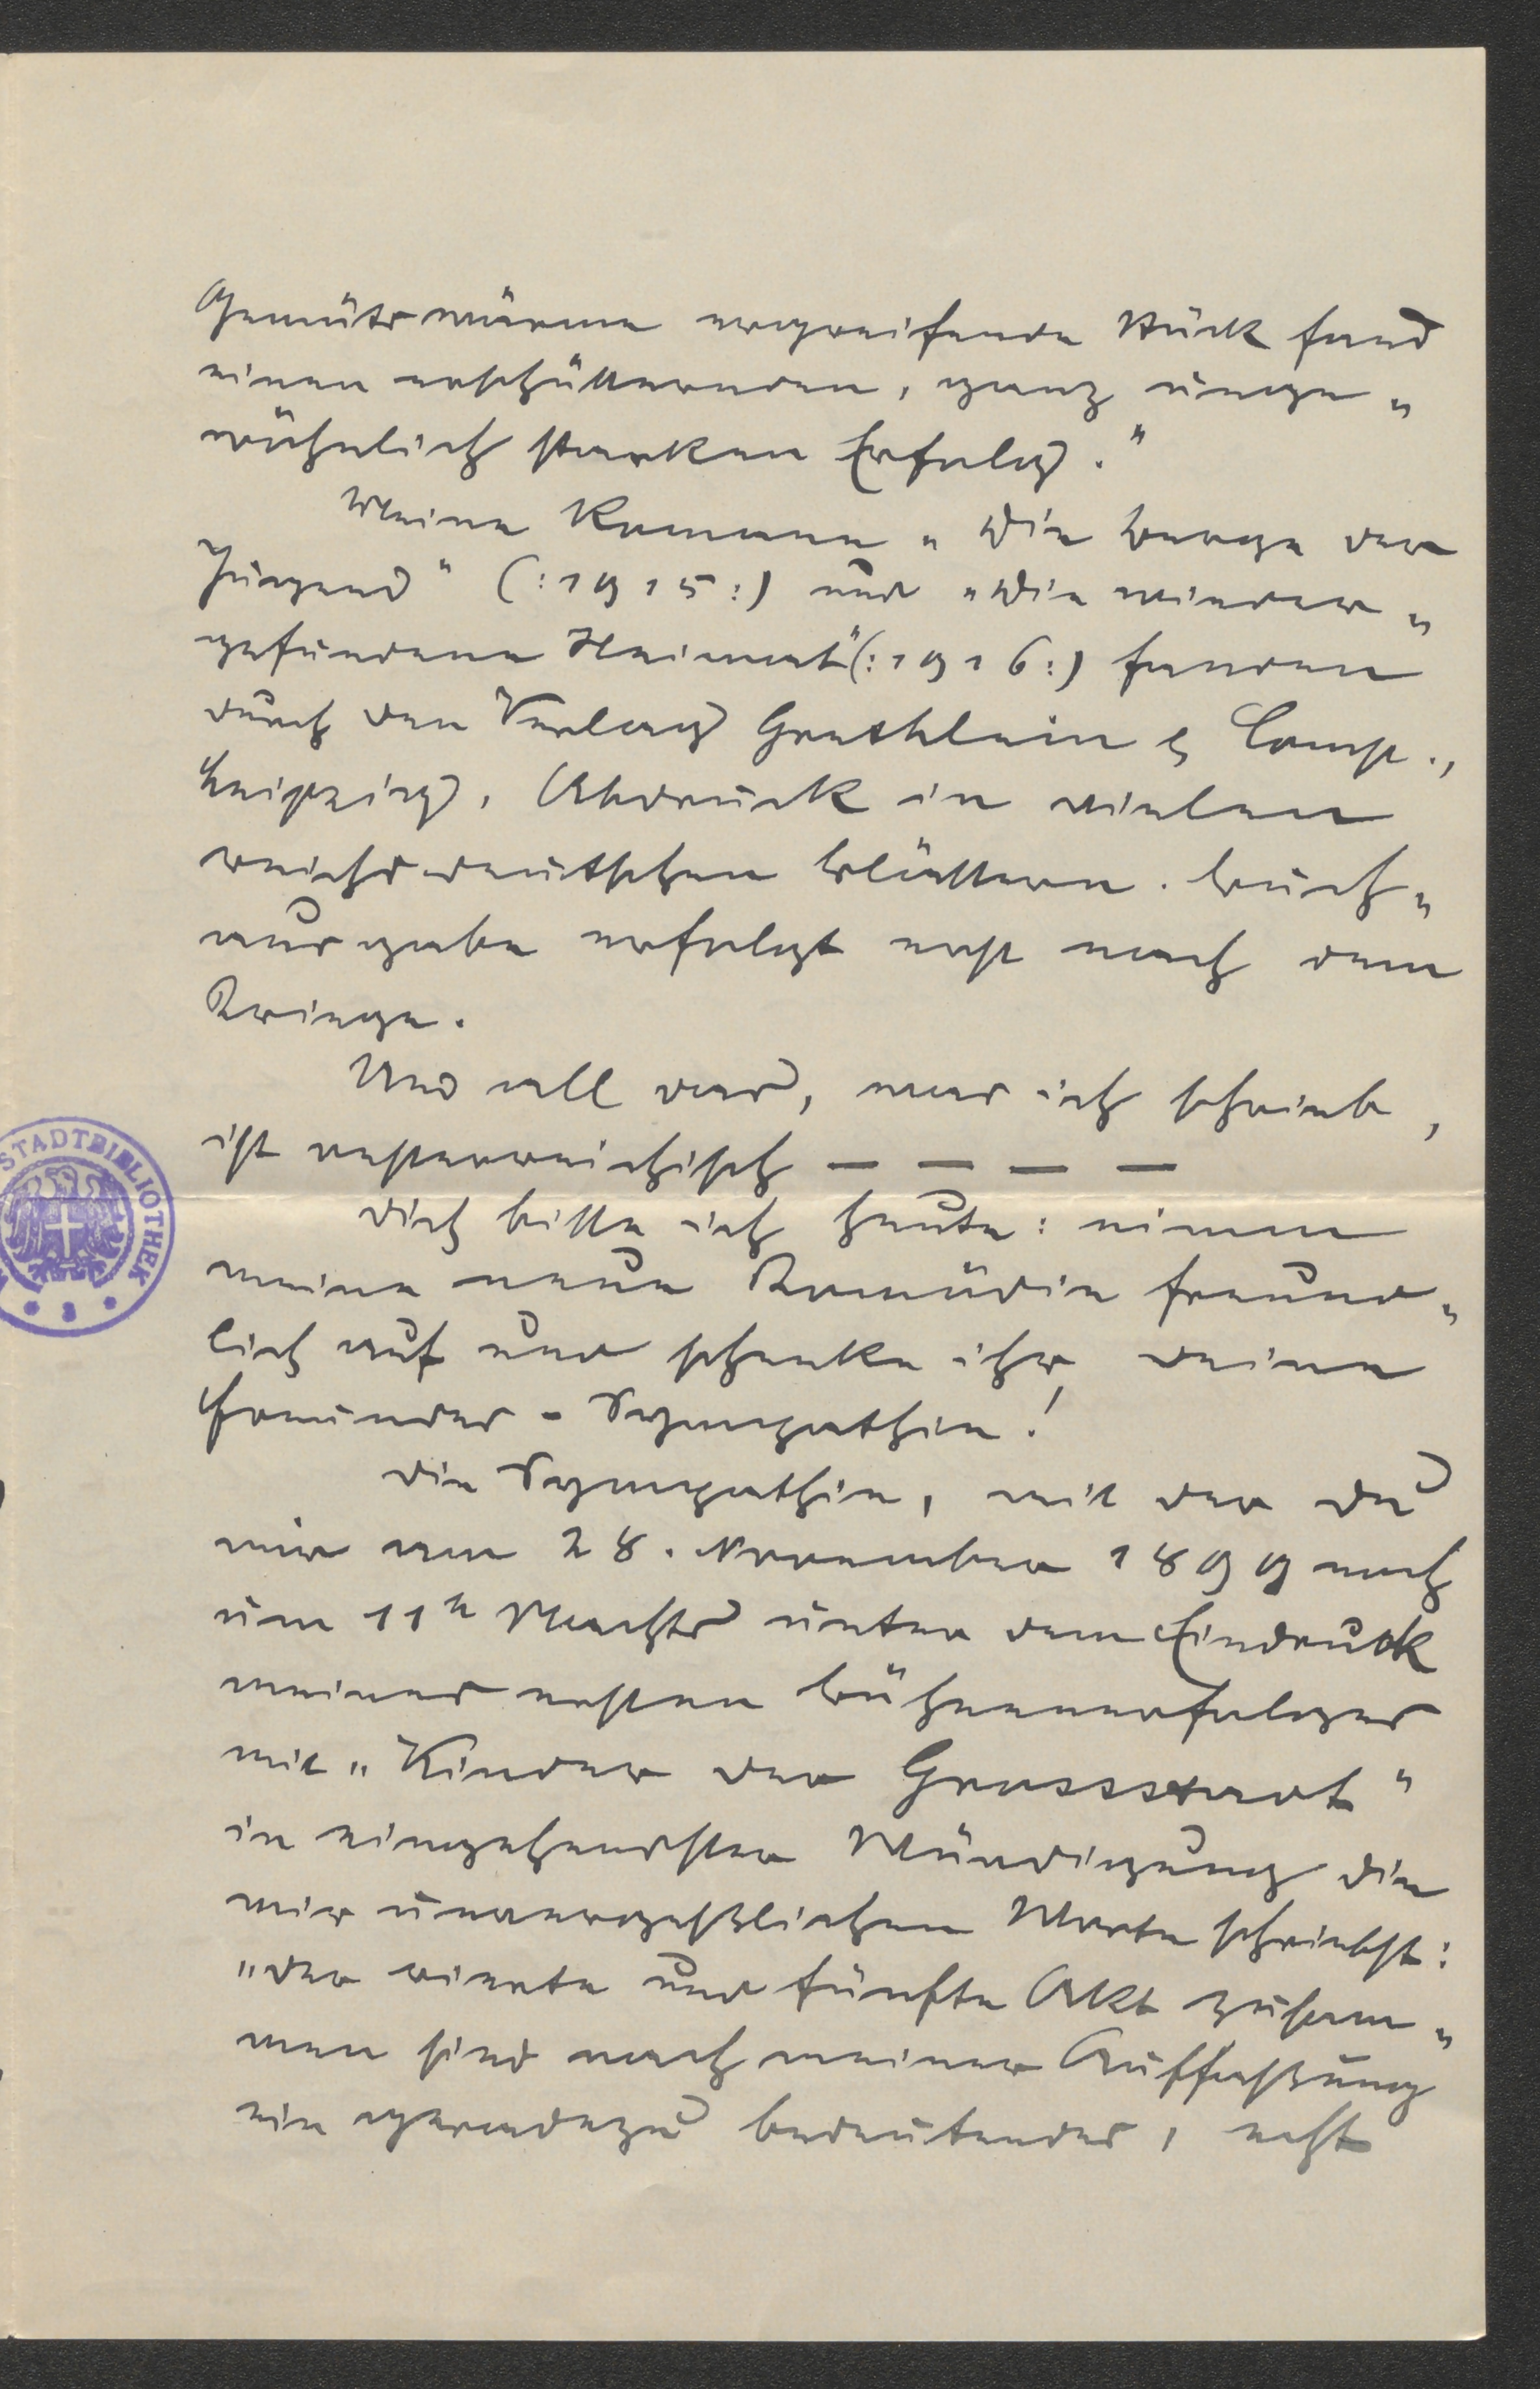 Gemütswärme ergreifende Stück fand
einen erschütternden, ganz unge„
wöhnlich starken Erfolg."
Meine Romane „Die Berge der
Jugend" (:1915:) und „Die wieder„
gefundene Heimat"(:1916:) fanden
durch den Verlag Grethlein & Comp.,
Leipzig, Abdruck in vielen
reichsdeutschen Blättern. Buch„
ausgabe erfolgt erst nach dem
Kriege.
Und all das, was ich schrieb,
ist oesterreichisch — — — —
Dich bitte ich heute: nimm
meine neue Komödie freund„
lich auf und schenke ihr deine
Freundes-Sympathie!
Die Sympathie, mit der du
mir am 28. November 1899 noch
um 11h Nachts unter dem Eindruck
meines ersten Bühnenerfolges
mit „Kinder der Grossstadt"
in eingehendster Würdigung die
mir unvergeßlichen Worte schriebst:
„Der vierte und fünfte Akt zusam„
men sind nach meiner Auffaßung
ein geradezu bedeutendes, echt
STADTBIBLIOTHEK